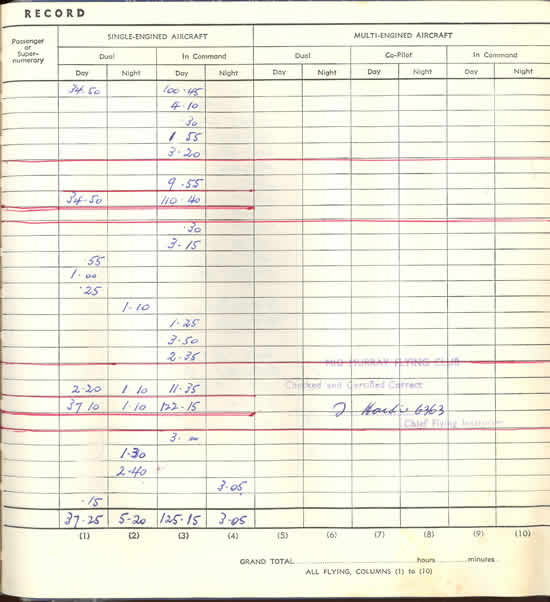 RECORD
Passenger or Super-numerary SINGLE-ENGINED AIRCRAFT MULTI-ENGINED AIRCRAFT
Dual In Command Dual Co-Pilot In Command
Day Night Day Night Day Night Day Night Day Night
34.50 100.45
4.10
.30
1.55
3.20
9.55
34.50 110.40
.30
3.15
.55
1.00
.25
1.10
1.25
3.50
2.35
MID MURRAY FLYING CLUB
2.20 1 10 11.35 Checked and Certified Correct
37 10 1.10 122.15 6363
Chief Flying Instructor
3.00
1.30
2.40
3.05
.15
37.25 5.20 125.15 3.05
(1) (2) (3) (4) (5) (6) (7) (8) (9) (10)
GRAND TOTAL hours minutes
ALL FLYING, COLUMNS (1) to (10)